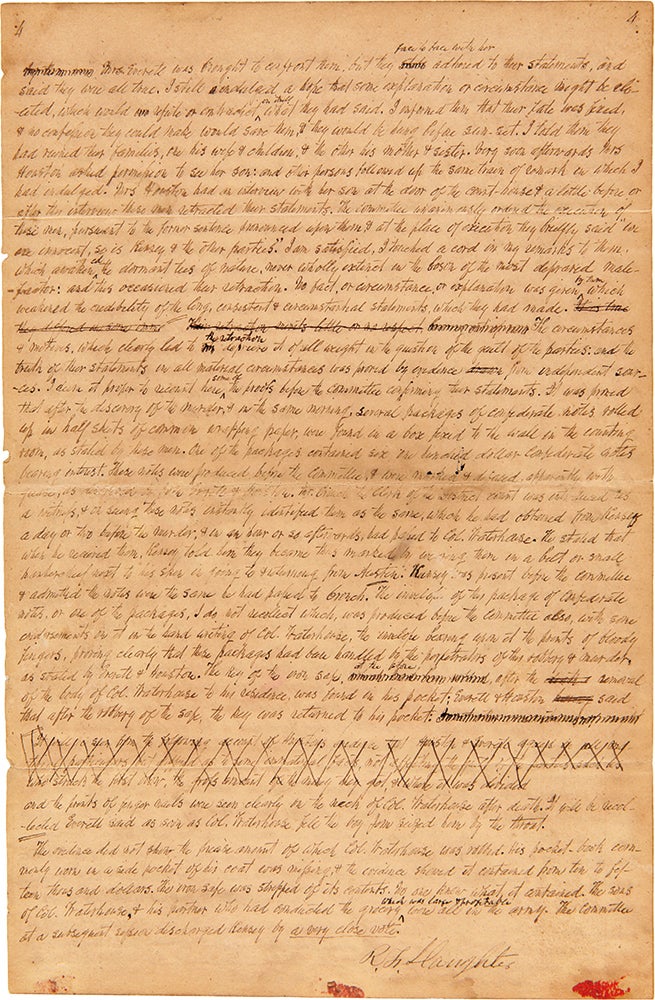 4 4
Mrs Everett was brought to confront them, but they face to face with her adhered to their statements, and
said they were all true. I still indulged a hope that some explanation or circumstance might be eli-
cited, which would refute or contradict in itself what they had said. I informed them that their fate was fixed,
& no confession they could make would save them, & they would be hung before sun-set. I told them they
had ruined their families, one his wife & children, & the other his mother & sister. Very soon afterwards Mrs
Houston asked permission to see her son: and other persons followed up the same train of remark in which I
had indulged. Mrs Houston had an interview with her son at the door of the court-house & a little before or
after this interview these men retracted their statements. The committee unanimously ordered the execution of
these men, pursuant to the former sentence pronounced upon them & at the place of execution they briefly said "we
are innocent, so is Kensey & the other parties." I am satisfied, I touched a cord in my remarks to them,
which awakened the dormant ties of nature, never wholly extinct in the bosom of the most depraved male-
-factor: and this occasioned their retraction. No fact, or circumstance, or explanation was given by them, which
weakened the credibility of the long, consistent & circumstantial statements, which they had made.
the circumstances
& motives, which clearly led to the retraction deprive it of all weight in the question of the guilt of the parties: and the
truth of their statements in all material circumstances was proved by evidence from independent sour-
-ces. I deem it proper to recount here, some of the proofs before the committee confirming their statements. It was proved
that after the discovery of the murder, & in the same morning, several packages of confederate notes rolled
up in half sheets of common wrapping paper, were found in a box fixed to the wall in the counting
room, as stated by these men. One of the packages contained six one hundred dollar Confederate notes
bearing interest. These notes were produced before the Committee, & were marked & defaced, apparently with
the Clerk of the District Court was introduced as
a witness, & on seeing these notes instantly identified them as the same, which he had obtained from Kensey
a day or two before the murder; & in an hour or so afterwards, had passed to Col. Waterhouse. He stated that
when he received them, Kensey told him they became thus marked by wearing them in a belt or small
handkerchief next to his skin in going to & returning from Austin. Kensey was present before the committee
& admitted the notes were the same he had passed to Crouch. The envelope of this package of Confederate
notes, or one of the packages, I do not recollect which, was produced before the Committee also, with some
endorsements on it in the hand writing of Col. Waterhouse, the envelope bearing upon it the prints of bloody
fingers, proving clearly that these packages had been handled by the perpetrators of this robbery & murder
as stated by Everett & Houston. The key of the iron safe, after the removal
of the body of Col. Waterhouse to his residence, was found in his pocket; Everett & Houston said
that after the robbery of the safe, the key was returned to his pocket.
and the prints of finger nails were seen clearly on the neck of Col. Waterhouse after death. It will be recol-
-lected Everett said as soon as Col. Waterhouse fell the boy Jim seized him by the throat.
The evidence did not show the precise amount of which Col. Waterhouse was robbed. his pocket book com-
monly worn in a side pocket of his coat was missing, & the evidence showed it contained from ten to fif-
teen thousand dollars. the iron safe was stripped of its contents. No one knew what it contained. the sons
of Col. Waterhouse, & his partner who had conducted the grocery, which was large & profitable were all in the army. The Committee
at a subsequent session discharged Kensey by a very close vote.
R. F. Slaughter